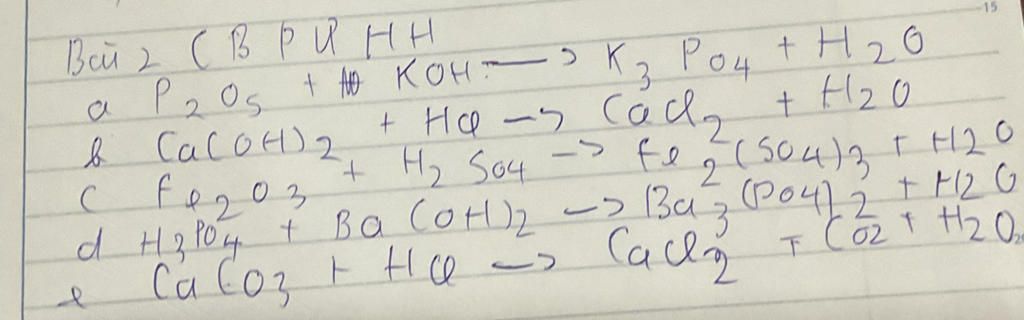 15
Bài 2 CBPUHH
a P2O5 + KOH → K3PO4 + H2O
b Ca(OH)2 + HCl → CaCl2 + H2O
c Fe2O3 + H2SO4 → Fe2(SO4)3 + H2O
d H3PO4 + Ba(OH)2 → Ba3(PO4)2 + H2O
e CaCO3 + HCl → CaCl2 + CO2 + H2O